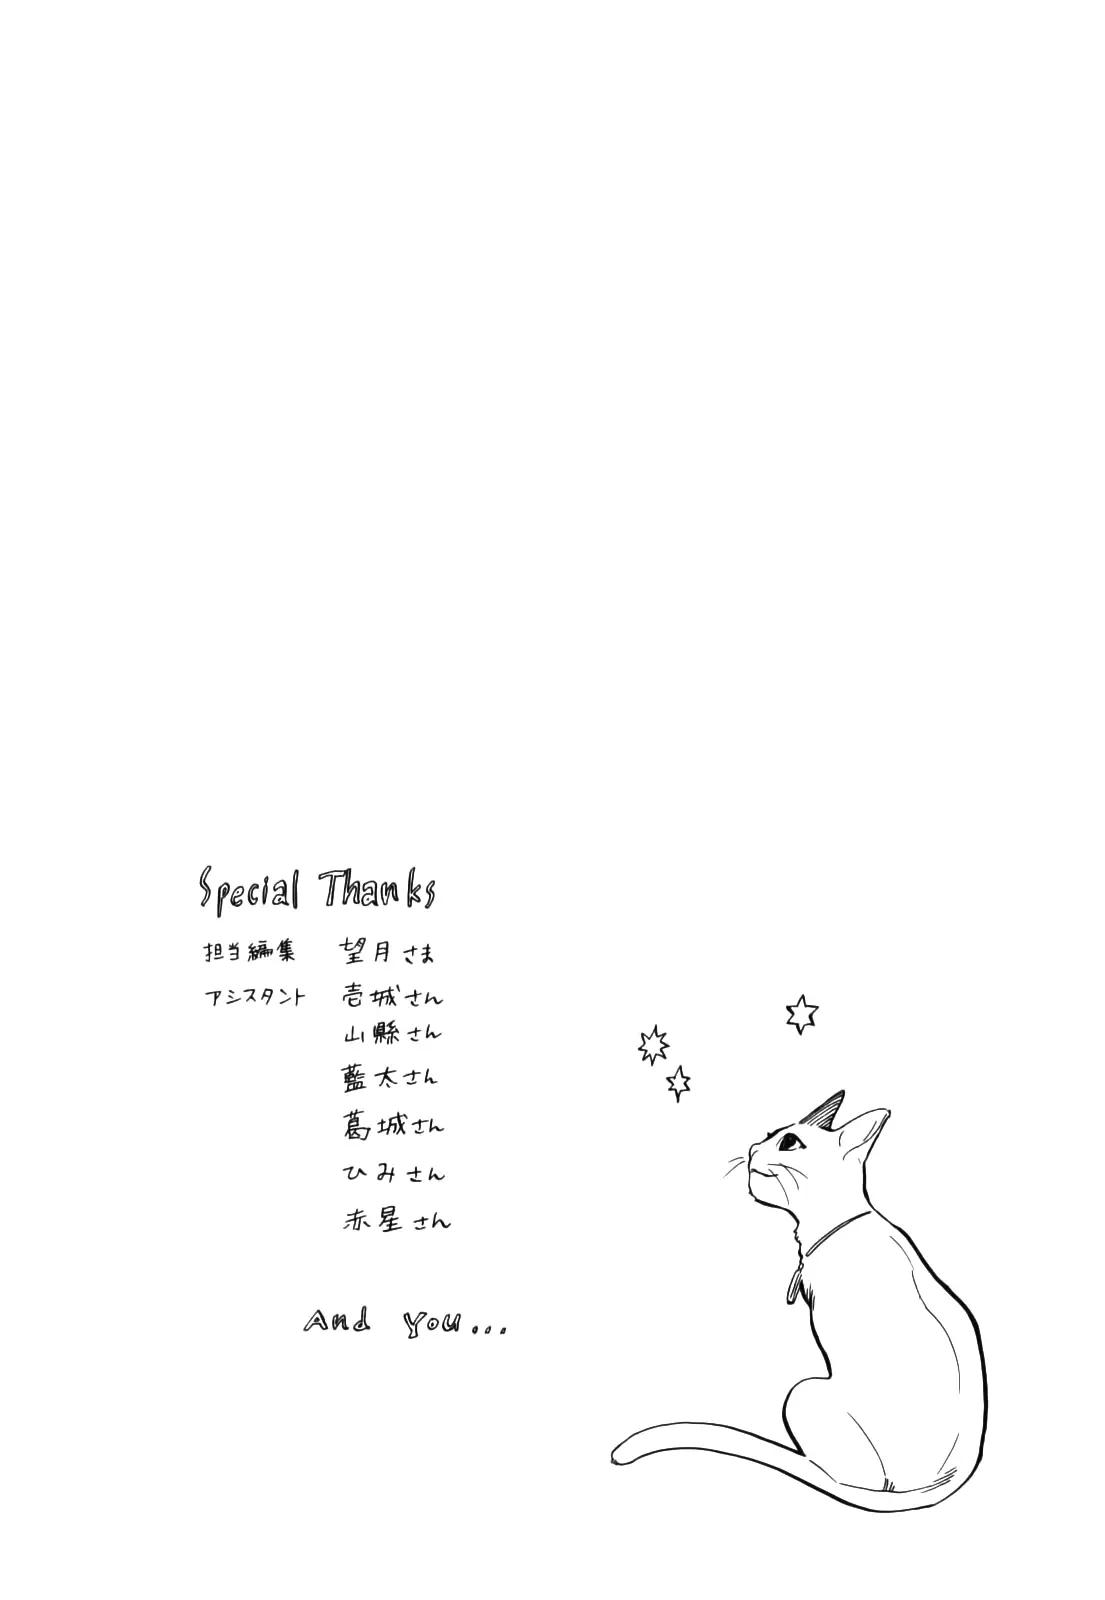 Special Thanks
担当編集 望月さま
アシスタント 壱城さん
山縣さん
藍太さん
葛城さん
ひみさん
赤星さん
And You...